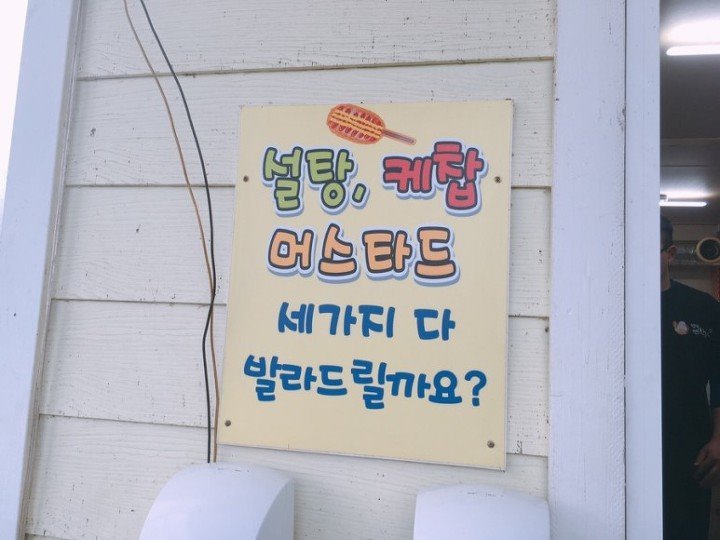 설탕, 케찹
머스타드
세가지 다
발라드릴까요?